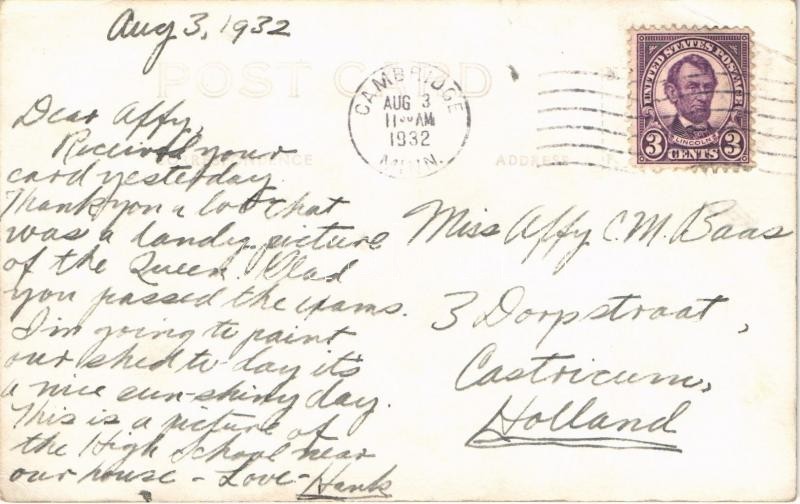 Aug 3, 1932
POST CARD
CAMBRIDGE
AUG 3
11 30 AM
1932
MINN.
UNITED STATES POSTAGE
LINCOLN
3 CENTS 3
CORRESPONDENCE
ADDRESS
Dear Affy,
Received your
card yesterday
Thank you a lot that
was a dandy picture
of the Queen. Glad
you passed the exams.
I'm going to paint
our shed to-day it's
a nice sun-shiny day.
This is a picture of
the High School near
our house - Love - Hank
Miss Affy C. M. Baas
3 Dorpstraat,
Castricum,
Holland